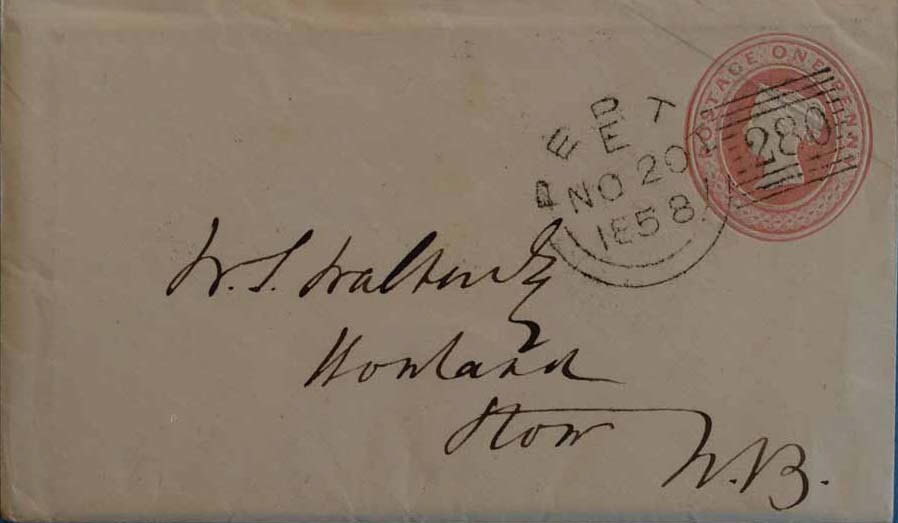 POSTAGE ONE PENNY
280
E
NO 20
1E58
W. S. Walker Esq
Bowland
Stow
N.B.